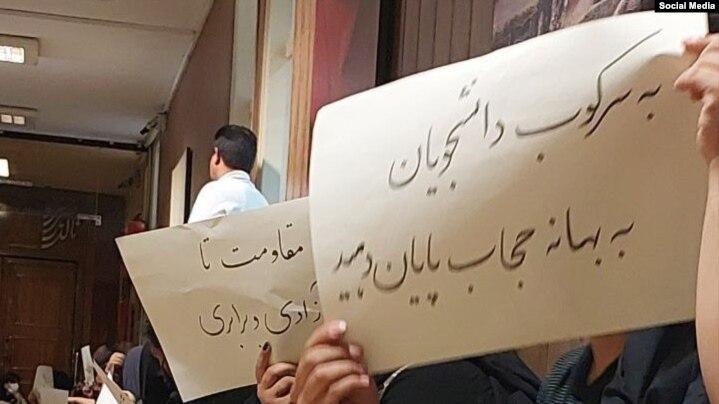 Social Media
به سرکوب دانشجویان
به بهانه حجاب پایان دهید
مقاومت تا
آزادی و برابری